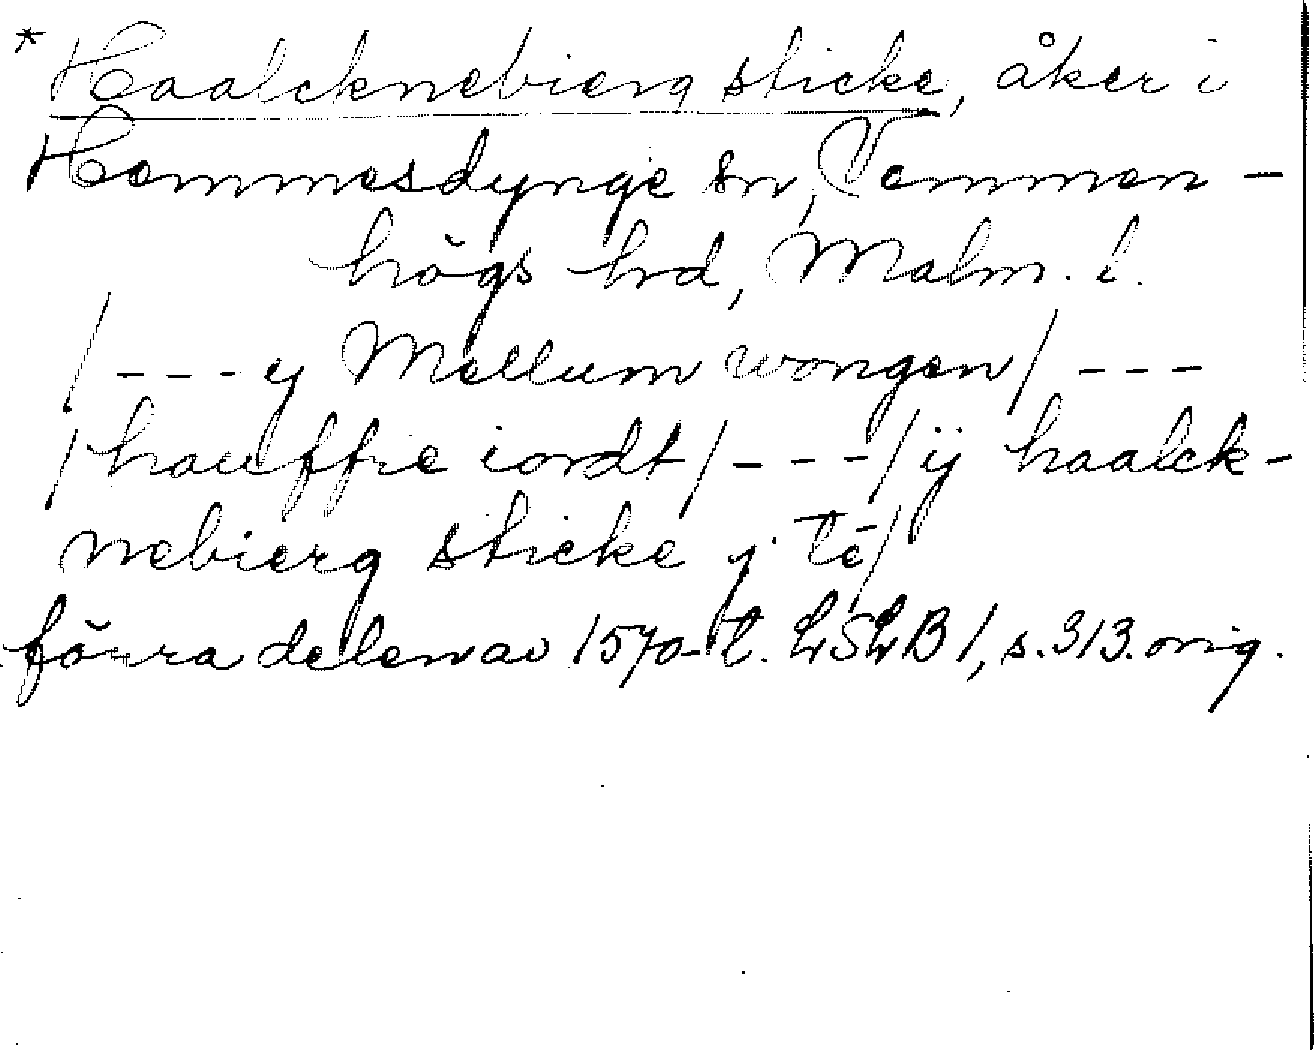 * Haalcknebierg sticke, åker i
Hemmesdynge sn, Vemmen-
högs hd, Malm. l.
/--- y Mellum wongen/ ---
/ houffue iordt/ ---/ ÿ haalck-
nebierg sticke j tē/
förra delen av 1570-t. LSLB 1, s. 313. orig.